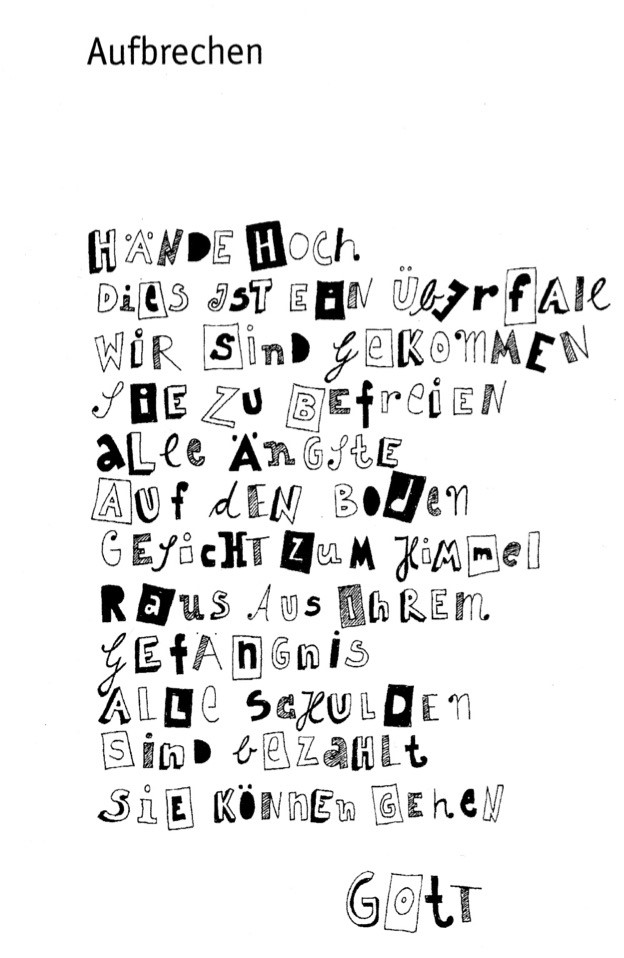 Aufbrechen
HÄNDE HOCH
DIES IST EIN ÜBERFALL
WIR SIND GEKOMMEN
SIE ZU BEFREIEN
ALLE ÄNGSTE
AUF DEN BODEN
GESICHT ZUM HIMMEL
RAUS AUS IHREM
GEFÄNGNIS
ALLE SCHULDEN
SIND BEZAHLT
SIE KÖNNEN GEHEN
GOTT